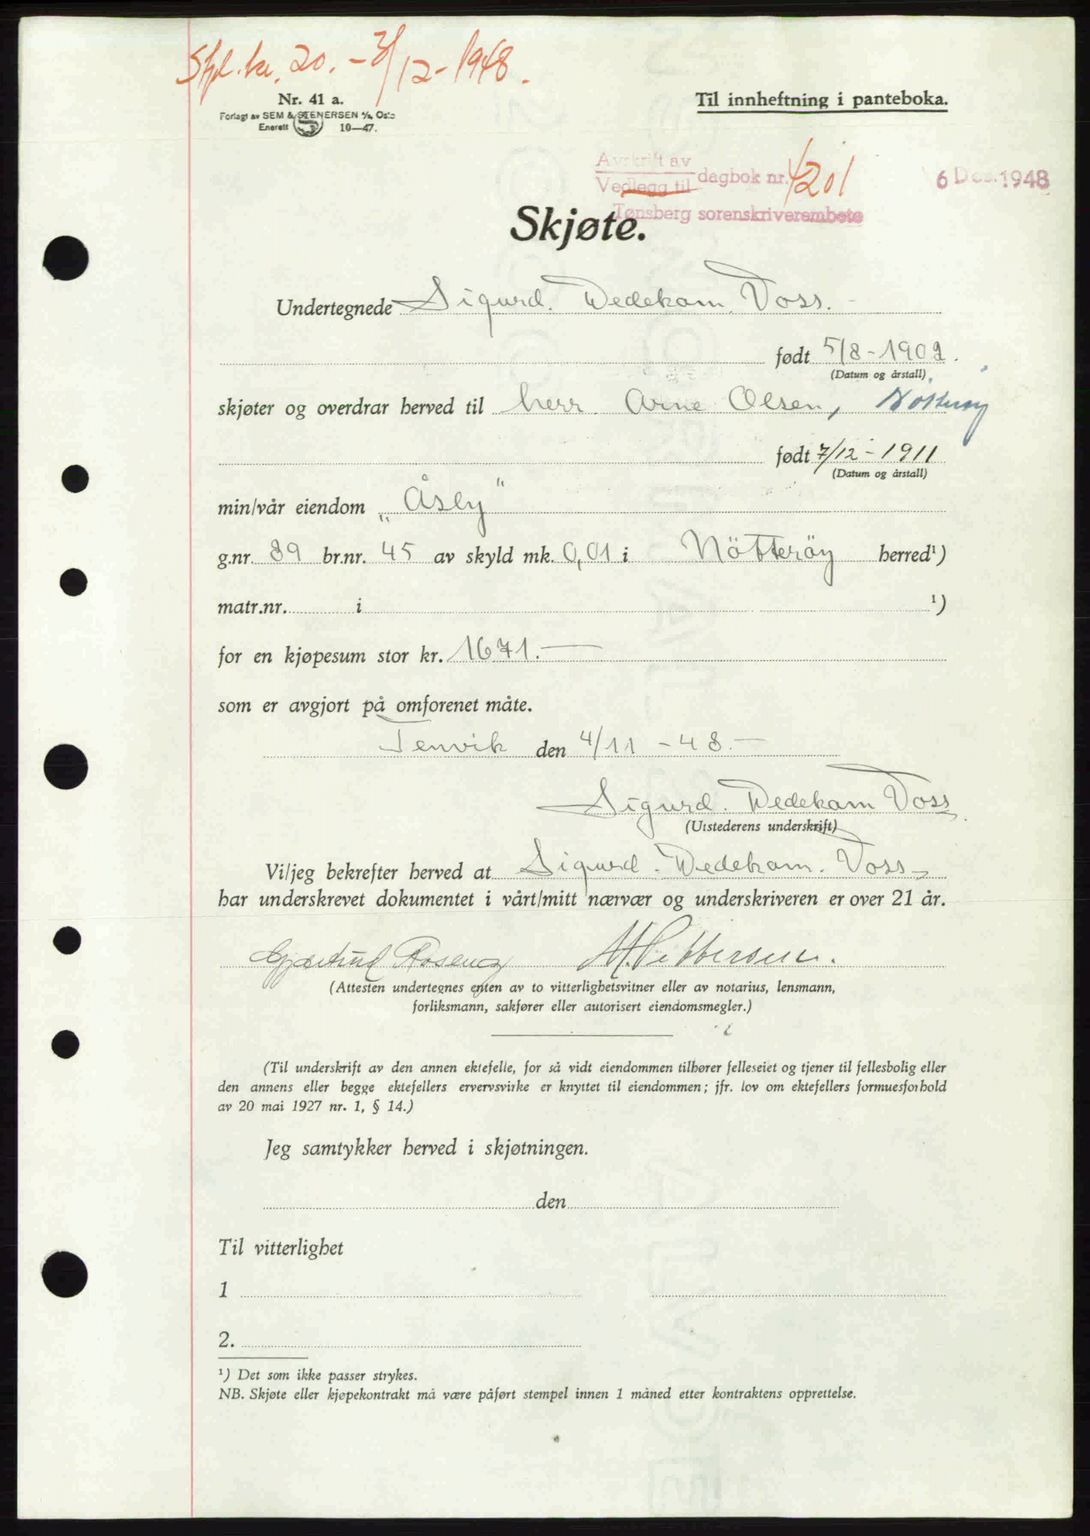 Stpl. kr. 20. - 3/12 - 1948.
Nr. 41 a.
Forlagt av SEM & STENERSEN A/s, Oslo
Enerett 10—47.
Til innheftning i panteboka.
Avskrift av
Vedlegg til dagbok nr. 4201 6 Des. 1948
Tønsberg sorenskriverembete
Skjøte.
Undertegnede Sigurd. Dedekam. Voss.
født 5/8 - 1902.
(Datum og årstall)
skjøter og overdrar herved til herr Arne Olsen, Nötteröy
født 7/12 - 1911
(Datum og årstall)
min/vår eiendom „Åsly"
g.nr. 89 br.nr. 45 av skyld mk. 0,01 i Nötteröy herred¹)
matr.nr. i ¹)
for en kjøpesum stor kr. 1671.—
som er avgjort på omforenet måte.
Tenvik den 4/11 - 48.—
Sigurd. Dedekam Voss
(Utstederens underskrift)
Vi/jeg bekrefter herved at Sigurd. Dedekam. Voss
har underskrevet dokumentet i vårt/mitt nærvær og underskriveren er over 21 år.
M. Pettersen.
(Attesten undertegnes enten av to vitterlighetsvitner eller av notarius, lensmann,
forliksmann, sakfører eller autorisert eiendomsmegler.)
(Til underskrift av den annen ektefelle, for så vidt eiendommen tilhører felleseiet og tjener til fellesbolig eller
den annens eller begge ektefellers ervervsvirke er knyttet til eiendommen; jfr. lov om ektefellers formuesforhold
av 20 mai 1927 nr. 1, § 14.)
Jeg samtykker herved i skjøtningen.
den
Til vitterlighet
1
2.
¹) Det som ikke passer strykes.
NB. Skjøte eller kjøpekontrakt må være påført stempel innen 1 måned etter kontraktens opprettelse.